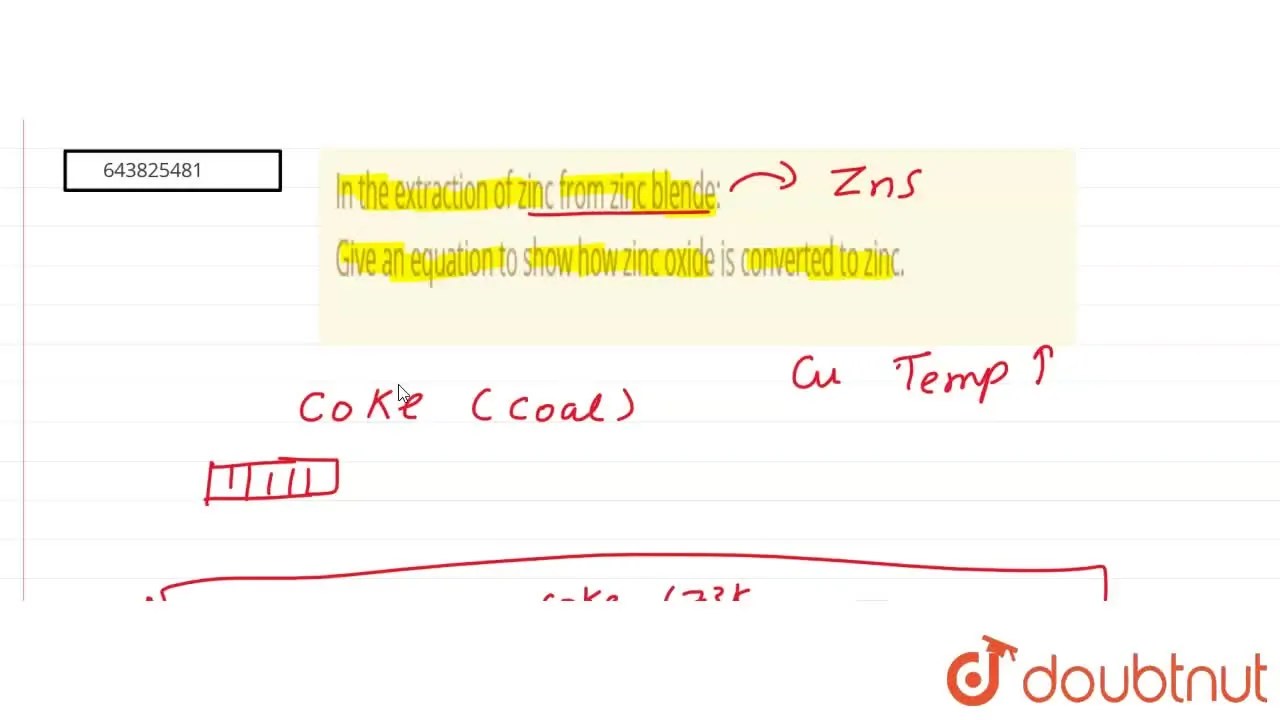 643825481
In the extraction of zinc from zinc blende: ZnS
Give an equation to show how zinc oxide is converted to zinc.
Cu Temp ↑
Coke (Coal)
coke
doubtnut